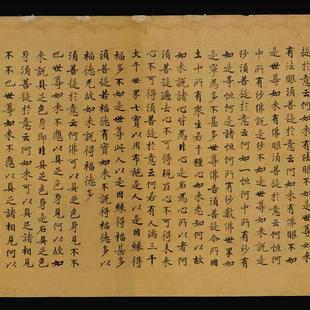 提於意云何如來有法眼不如是世尊如來
有法眼須菩提於意云何如來有佛眼不如
是世尊如來有佛眼須菩提於意云何恒河
中所有沙佛說是沙不如是世尊如來說是
沙須菩提於意云何如一恒河中所有沙有
如是等恒河是諸恒河所有沙數佛世界如
是寧為多不甚多世尊佛告須菩提尒所國
土中所有眾生若干種心如來悉知何以故
如來說諸心皆為非心是名為心所以者何
須菩提過去心不可得現在心不可得未來
心不可得須菩提於意云何若有人滿三千
大千世界七寶以用布施是人以是因緣得
福多不如是世尊此人以是因緣得福甚多
須菩提若福德有實如來不說得福德多以
福德无故如來說得福德多
須菩提於意云何佛可以具足色身見不不
也世尊如來不應以具足色身見何以故如
來說具足色身即非具足色身是名具足色
身須菩提於意云何如來可以具足諸相見
不不也世尊如來不應以具足諸相見何以